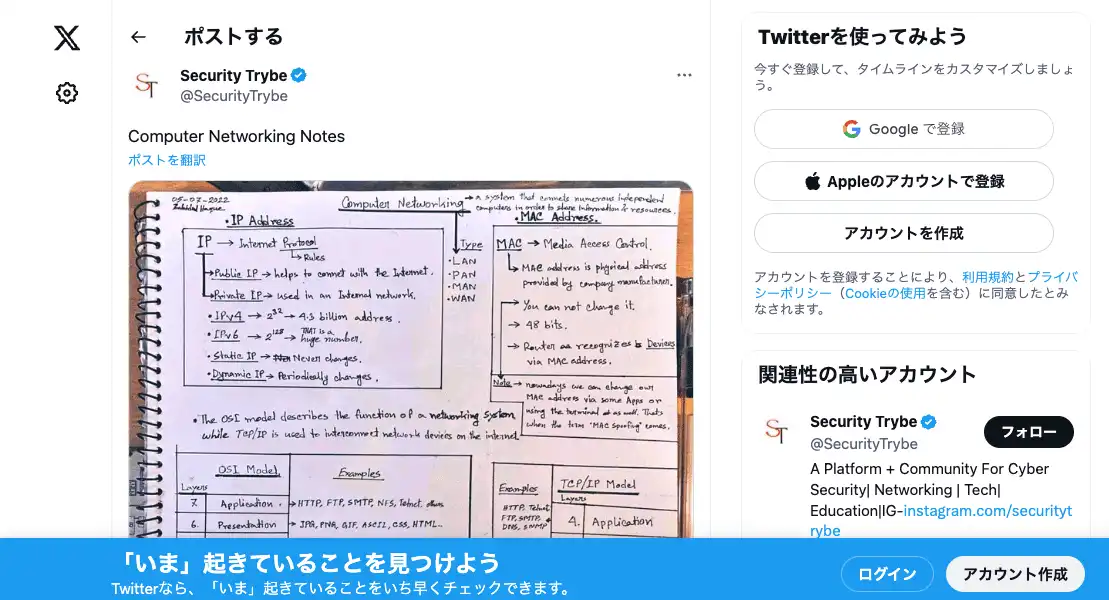 ポストする
Security Trybe
@SecurityTrybe
Computer Networking Notes
ポストを翻訳
05-07-2022
Computer Networking → a system that connects numerous independent
computers in order to share information & resources.
• IP Address
IP → Internet Protocol
↳ Rules
Public IP → helps to connet with the Internet.
Private IP → used in an Internal network.
• IPv4 → 2^32 → 4.3 billion address.
• IPv6 → 2^128 → THAT is a huge number.
• Static IP → Never changes.
• Dynamic IP → Periodically changes.
Type
• LAN
• PAN
• MAN
• WAN
• MAC Address.
MAC → Media Access Control.
↳ MAC address is physical address
provided by company manufacturer.
→ You can not change it.
→ 48 bits.
→ Router recognizes Devices
via MAC address.
Note → nowadays we can change our
MAC address via some Apps or
using the terminal as well. Thats
when the term "MAC spoofing" comes.
• The OSI model describes the function of a networking system
while TCP/IP is used to interconnect network devices on the internet.
OSI Model.
Examples
Layers
7. Application • → HTTP, FTP, SMTP, NFS, Telnet,
6. Presentation → JPG, PNG, GIF, ASCII, CSS, HTML...
Examples
TCP/IP Model
Layers
HTTP, Telnet
FTP, SMTP,
DNS, SNMP
4. Application
Twitterを使ってみよう
今すぐ登録して、タイムラインをカスタマイズしましょ
う。
Google で登録
Appleのアカウントで登録
アカウントを作成
アカウントを登録することにより、利用規約とプライバ
シーポリシー（Cookieの使用を含む）に同意したとみ
なされます。
関連性の高いアカウント
Security Trybe
@SecurityTrybe
フォロー
A Platform + Community For Cyber
Security| Networking | Tech|
Education|IG-instagram.com/securityt
rybe
「いま」起きていることを見つけよう
Twitterなら、「いま」起きていることをいち早くチェックできます。
ログイン
アカウント作成